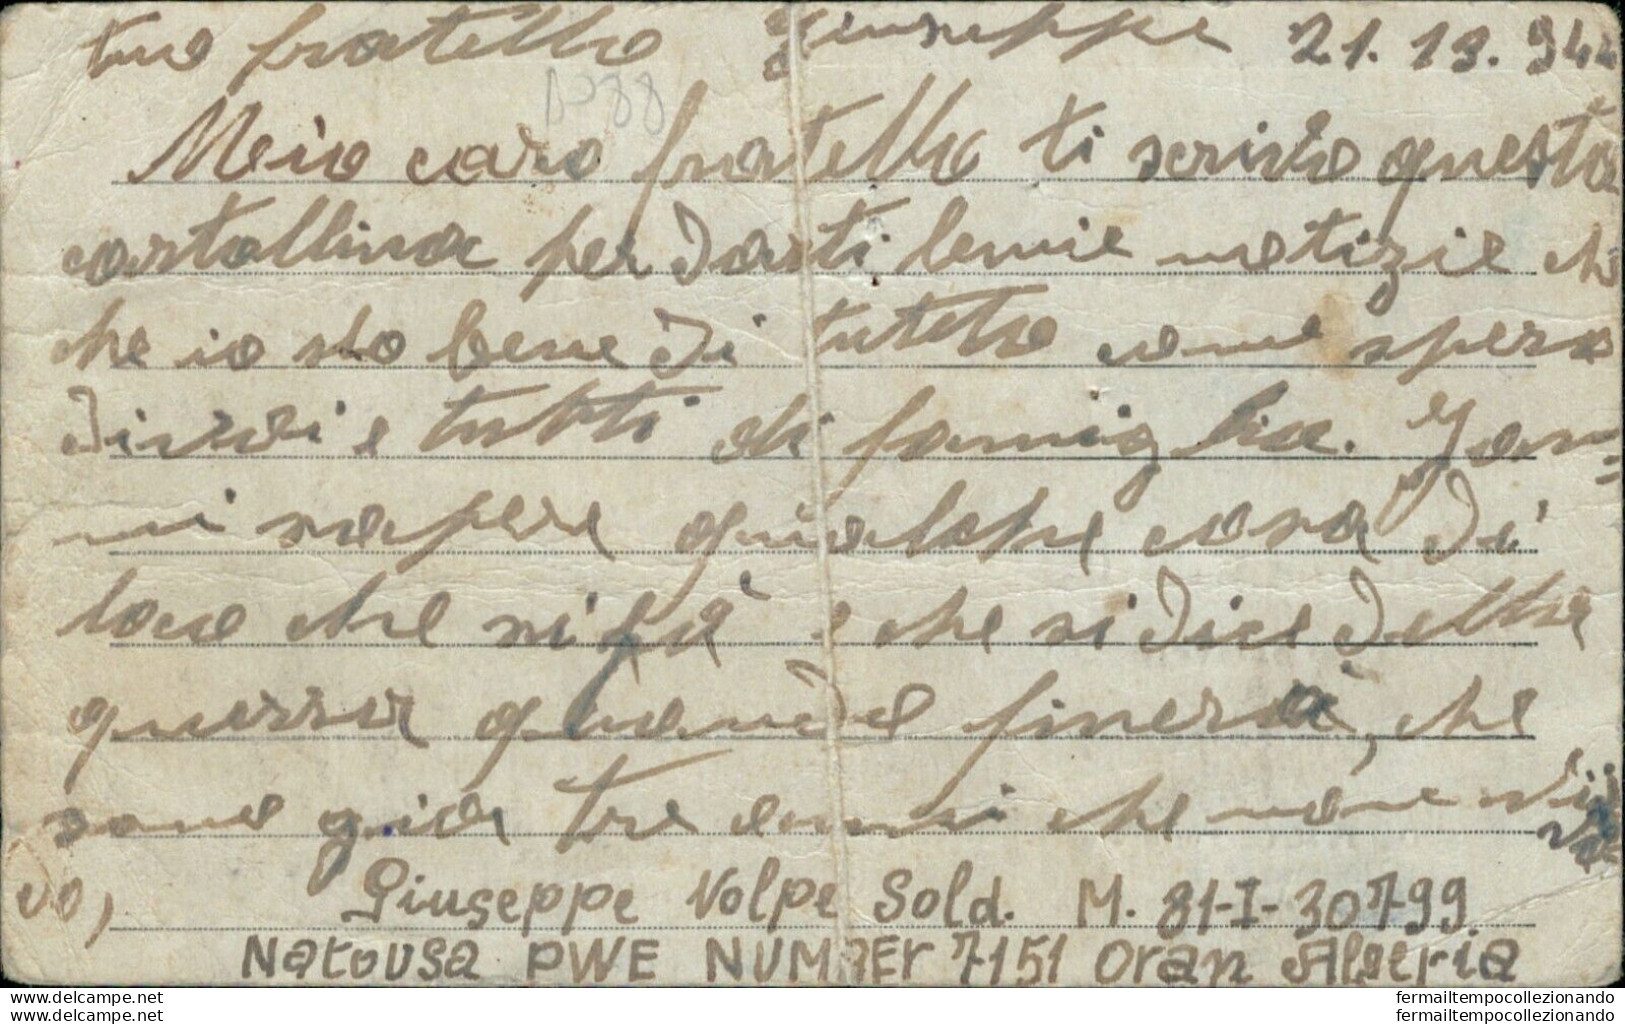 tuo fratello Giuseppe 21.13.944
D°88
Meio caro fratello ti scrivo questa
cartallina per darti benie notizie ch
che io sto bene di tuteto come spero
di voi e tutti di famiglia. Jan=
mi sapere qualche cosa di
loco che si fà e che si dice della
guerra quande finerà, che
sono gia tre anni che non vi
vo,
Giuseppe Volpe Sold. M. 81-I-30799
Natousa PWE NUMBER 7151 Oran Algeria
delcampe.net
delcampe.net
fermailtempocollezionando
fermailtempocollezionando